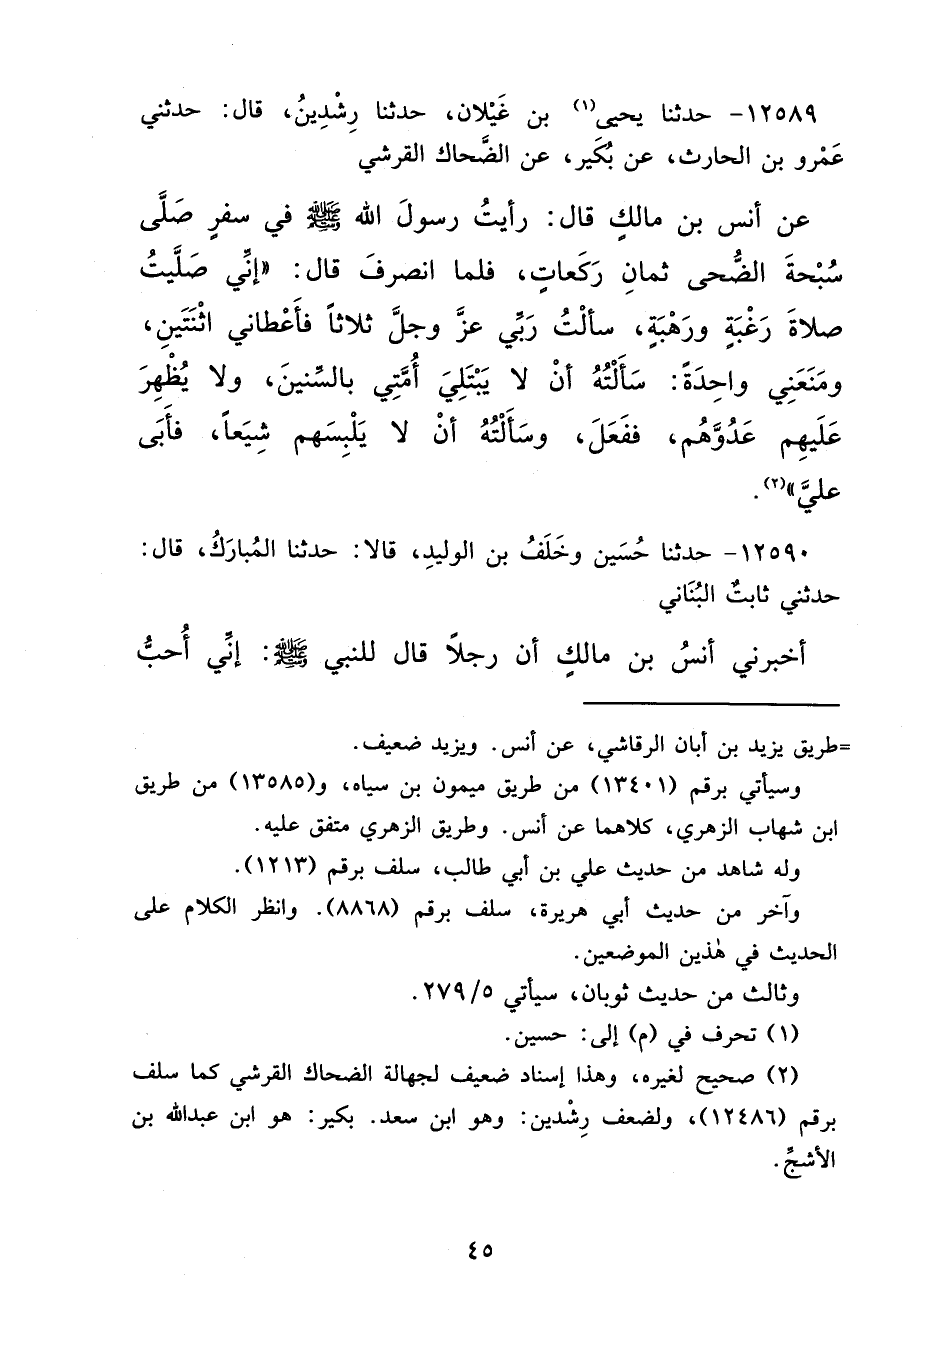 ١٢٥٨٩- حدثنا يحيى(١) بن غَيْلان، حدثنا رِشْدِينُ، قال: حدثني
عَمْرو بن الحارث، عن بُكَير، عن الضَّحاك القرشي
عن أنس بن مالكٍ قال: رأيتُ رسولَ الله ﷺ في سفرٍ صَلَّى
سُبْحةَ الضُّحى ثمانِ رَكَعاتٍ، فلما انصرفَ قال: «إنِّي صَلَّيتُ
صلاةَ رَغْبَةٍ ورَهْبَةٍ، سألْتُ رَبِّي عزَّ وجلَّ ثلاثاً فأَعْطاني اثْنَتَينِ،
ومَنَعَنِي واحِدَةً: سَأَلْتُهُ أنْ لا يَبْتَلِيَ أُمَّتِي بالسِّنينَ، ولا يُظْهِرَ
عَلَيهِم عَدُوَّهُم، ففَعَلَ، وسَأَلْتُهُ أنْ لا يَلْبِسَهم شِيَعاً، فأَبَى
عليَّ»(٢).
١٢٥٩٠- حدثنا حُسَين وخَلَفُ بن الوليدِ، قالا: حدثنا المُبارَكُ، قال:
حدثني ثابتٌ البُنَاني
أخبرني أنسُ بن مالكٍ أن رجلاً قال للنبي ﷺ: إنِّي أُحبُّ
=طريق يزيد بن أبان الرقاشي، عن أنس. ويزيد ضعيف.
وسيأتي برقم (١٣٤٠١) من طريق ميمون بن سياه، و(١٣٥٨٥) من طريق
ابن شهاب الزهري، كلاهما عن أنس. وطريق الزهري متفق عليه.
وله شاهد من حديث علي بن أبي طالب، سلف برقم (١٢١٣).
وآخر من حديث أبي هريرة، سلف برقم (٨٨٦٨). وانظر الكلام على
الحديث في هٰذين الموضعين.
وثالث من حديث ثوبان، سيأتي ٢٧٩/٥.
(١) تحرف في (م) إلى: حسين.
(٢) صحيح لغيره، وهذا إسناد ضعيف لجهالة الضحاك القرشي كما سلف
برقم (١٢٤٨٦)، ولضعف رِشْدين: وهو ابن سعد. بكير: هو ابن عبدالله بن
الأشجِّ.
٤٥